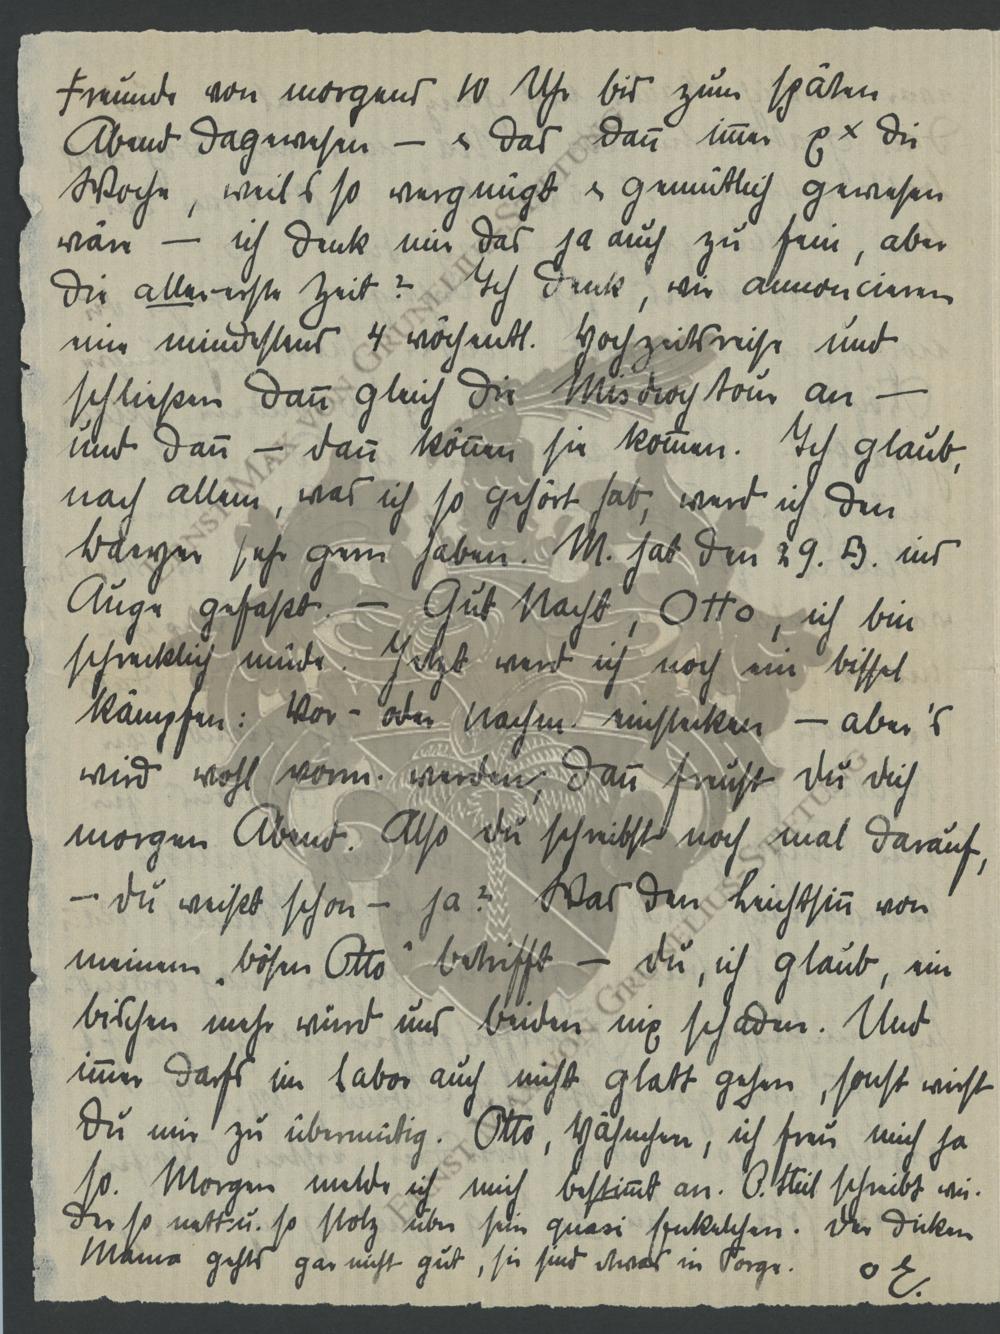 Freunde von morgens 10 Uhr bis zum späten
Abend dagewesen — & das dan̄ im̄er x die
Woche, weil's so vergnügt & gemütlich gewesen
wäre — ich denk mir das ja auch zu fein, aber
die allererste Zeit? Ich denk, wir annoncieren
eine mindestens 4 wöchentl. Hochzeitsreise und
schließen dan̄ gleich die Misdroytour an —
und dan̄ — dan̄ kön̄en sie kom̄en. Ich glaub,
nach allem, was ich so gehört hab, werd ich den
Baeyer sehr gern haben. M. hat den 29. D. ins
Auge gefaßt. — Gut Nacht, Otto, ich bin
schrecklich müde. Jetzt werd ich noch ein bissel
kämpfen: Vor- oder Nachm. einstecken — aber's
wird wohl vorm. werden, dan̄ freust du dich
morgen Abend. Also du schreibst noch mal darauf,
— du weißt schon — ja? Was den Leichtsin̄ von
meinem „bösen Otto" betrifft — du, ich glaub, ein
bischen mehr würd uns beiden nix schaden. Und
im̄er darfs im Labor auch nicht glatt gehen, sonst wirst
du mir zu übermütig. Otto, Hähnchen, ich freu mich ja
so. Morgen melde ich mich bestim̄t an. O. Emil schreibt mir.
der so nett u. so stolz über sein quasi Enkelchen. Der dicken
Mama gehts gar nicht gut, sie sind etwas in Sorge. E.
ERNST MAX VON GRUNELIUS STIFTUNG
ERNST MAX VON GRUNELIUS STIFTUNG